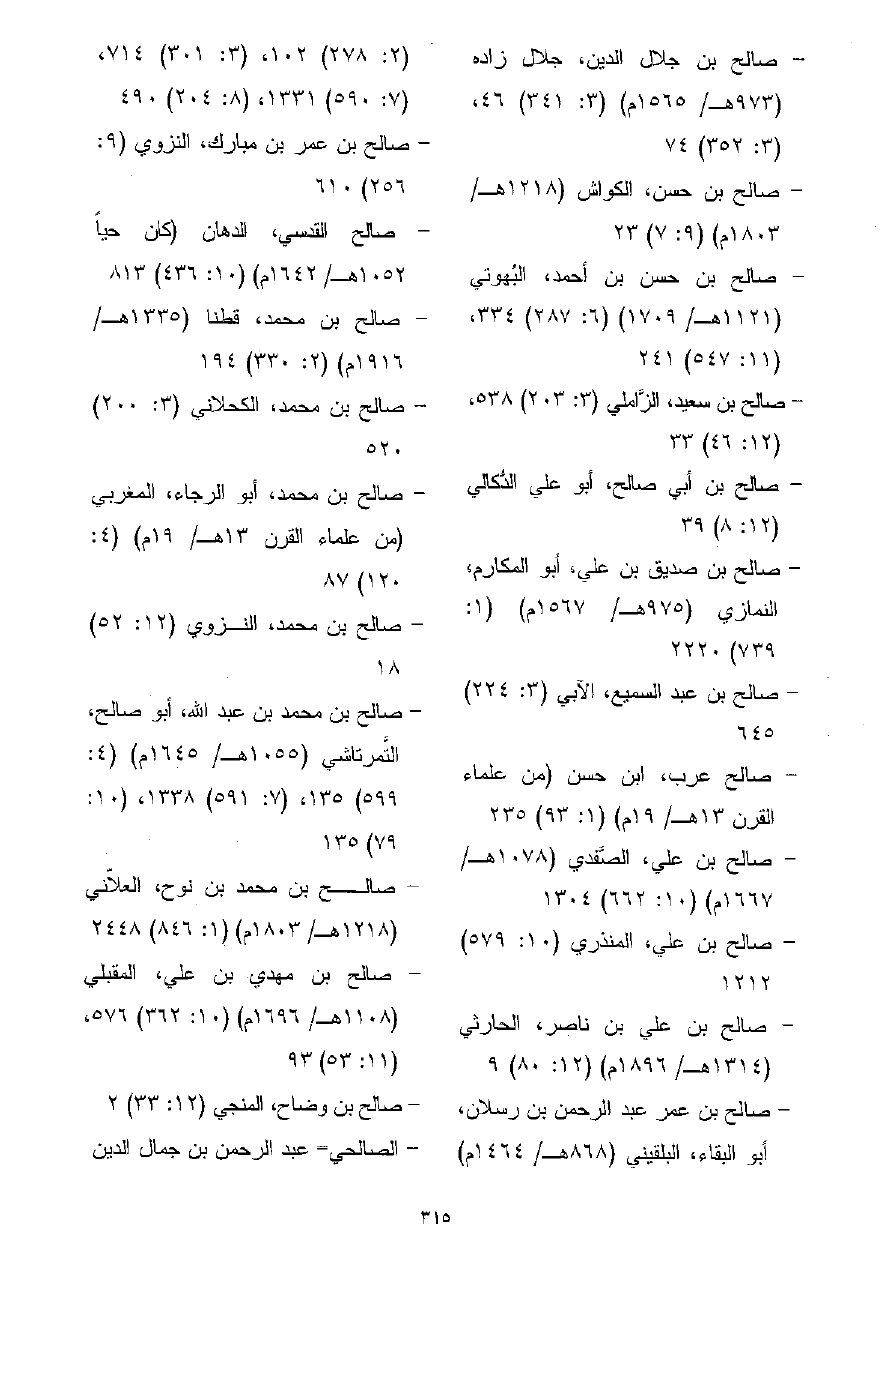 - صالح بن جلال الدين، جلال زاده
(٩٧٣هـ/ ١٥٦٥م) (٣: ٣٤١) ٤٦،
(٣: ٣٥٢) ٧٤
- صالح بن حسن، الكواش (١٢١٨هـ/
١٨٠٣م) (٩: ٧) ٢٣
- صالح بن حسن بن أحمد، البُهوتي
(١١٢١هـ/ ١٧٠٩) (٦: ٢٨٧) ٣٣٤،
(١١: ٥٤٧) ٢٤١
- صالح بن سعيد، الزَّاملي (٣: ٢٠٣) ٥٣٨،
(١٢: ٤٦) ٣٣
- صالح بن أبي صالح، أبو علي الدُّكالي
(١٢: ٨) ٣٩
- صالح بن صديق بن علي، أبو المكارم،
النمازي (٩٧٥هـ/ ١٥٦٧م) (١:
٧٣٩) ٢٢٢٠
- صالح بن عبد السميع، الآبي (٣: ٢٢٤)
٦٤٥
- صالح عرب، ابن حسن (من علماء
القرن ١٣هـ/ ١٩م) (١: ٩٣) ٢٣٥
- صالح بن علي، الصَّفَدي (١٠٧٨هـ/
١٦٦٧م) (١٠: ٦٦٢) ١٣٠٤
- صالح بن علي، المنذري (١٠: ٥٧٩)
١٢١٢
- صالح بن علي بن ناصر، الحارثي
(١٣١٤هـ/ ١٨٩٦م) (١٢: ٨٠) ٩
- صالح بن عمر عبد الرحمن بن رسلان،
أبو البقاء، البلقيني (٨٦٨هـ/ ١٤٦٤م)
(٢: ٢٧٨) ١٠٢، (٣: ٣٠١) ٧١٤،
(٧: ٥٩٠) ١٣٣١، (٨: ٢٠٤) ٤٩٠
- صالح بن عمر بن مبارك، النزوي (٩:
٢٥٦) ٦١٠
- صالح القدسي، الدهان (كان حياً
١٠٥٢هـ/ ١٦٤٢م) (١٠: ٤٣٦) ٨١٣
- صالح بن محمد، قطنا (١٣٣٥هـ/
١٩١٦م) (٢: ٣٣٠) ١٩٤
- صالح بن محمد، الكحلاني (٣: ٢٠٠)
٥٢٠
- صالح بن محمد، أبو الرجاء، المغربي
(من علماء القرن ١٣هـ/ ١٩م) (٤:
١٢٠) ٨٧
- صالح بن محمد، النـزوي (١٢: ٥٢)
١٨
- صالح بن محمد بن عبد الله، أبو صالح،
التُّمرتاشي (١٠٥٥هـ/ ١٦٤٥م) (٤:
٥٩٩) ١٣٥، (٧: ٥٩١) ١٣٣٨، (١٠:
٧٩) ١٣٥
- صالـــح بن محمد بن نوح، العلاّني
(١٢١٨هـ/ ١٨٠٣م) (١: ٨٤٦) ٢٤٤٨
- صالح بن مهدي بن علي، المقبلي
(١١٠٨هـ/ ١٦٩٦م) (١٠: ٣٦٢) ٥٧٦،
(١١: ٥٣) ٩٣
- صالح بن وضاح، المنجي (١٢: ٣٣) ٢
- الصالحي= عبد الرحمن بن جمال الدين
٣١٥